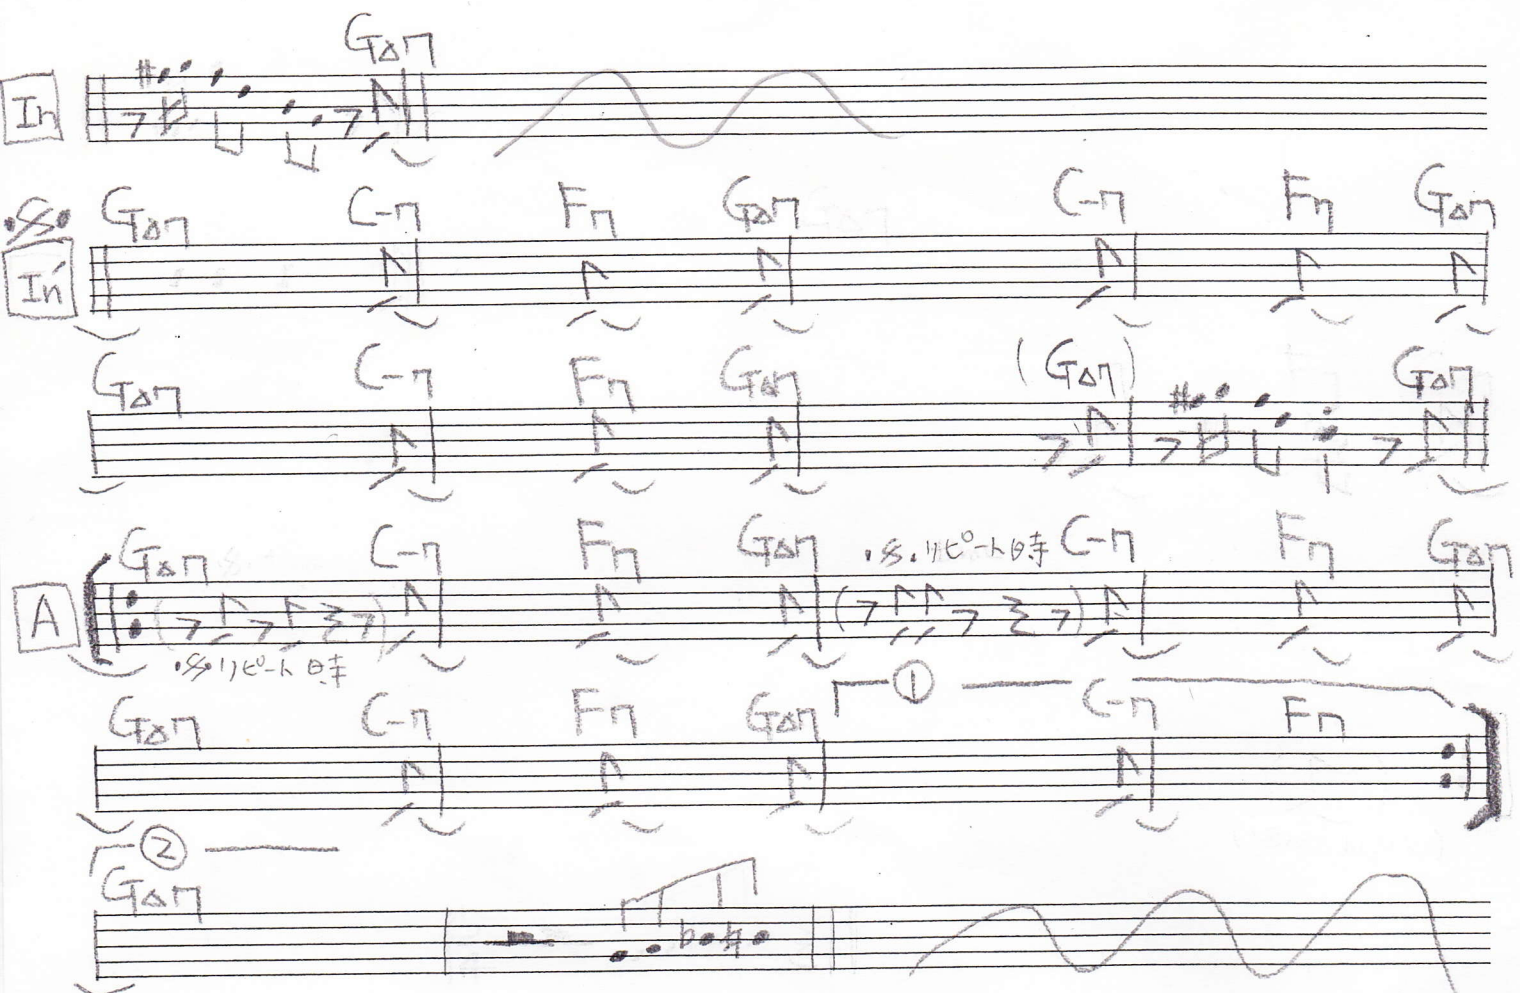 G△7
In
G△7 C-7 F7 G△7 C-7 F7 G△7
In'
G△7 C-7 F7 G△7 (G△7) G△7
G△7 C-7 F7 G△7 リピート時 C-7 F7 G△7
A
リピート時
①
G△7 C-7 F7 G△7 C-7 F7
②
G△7